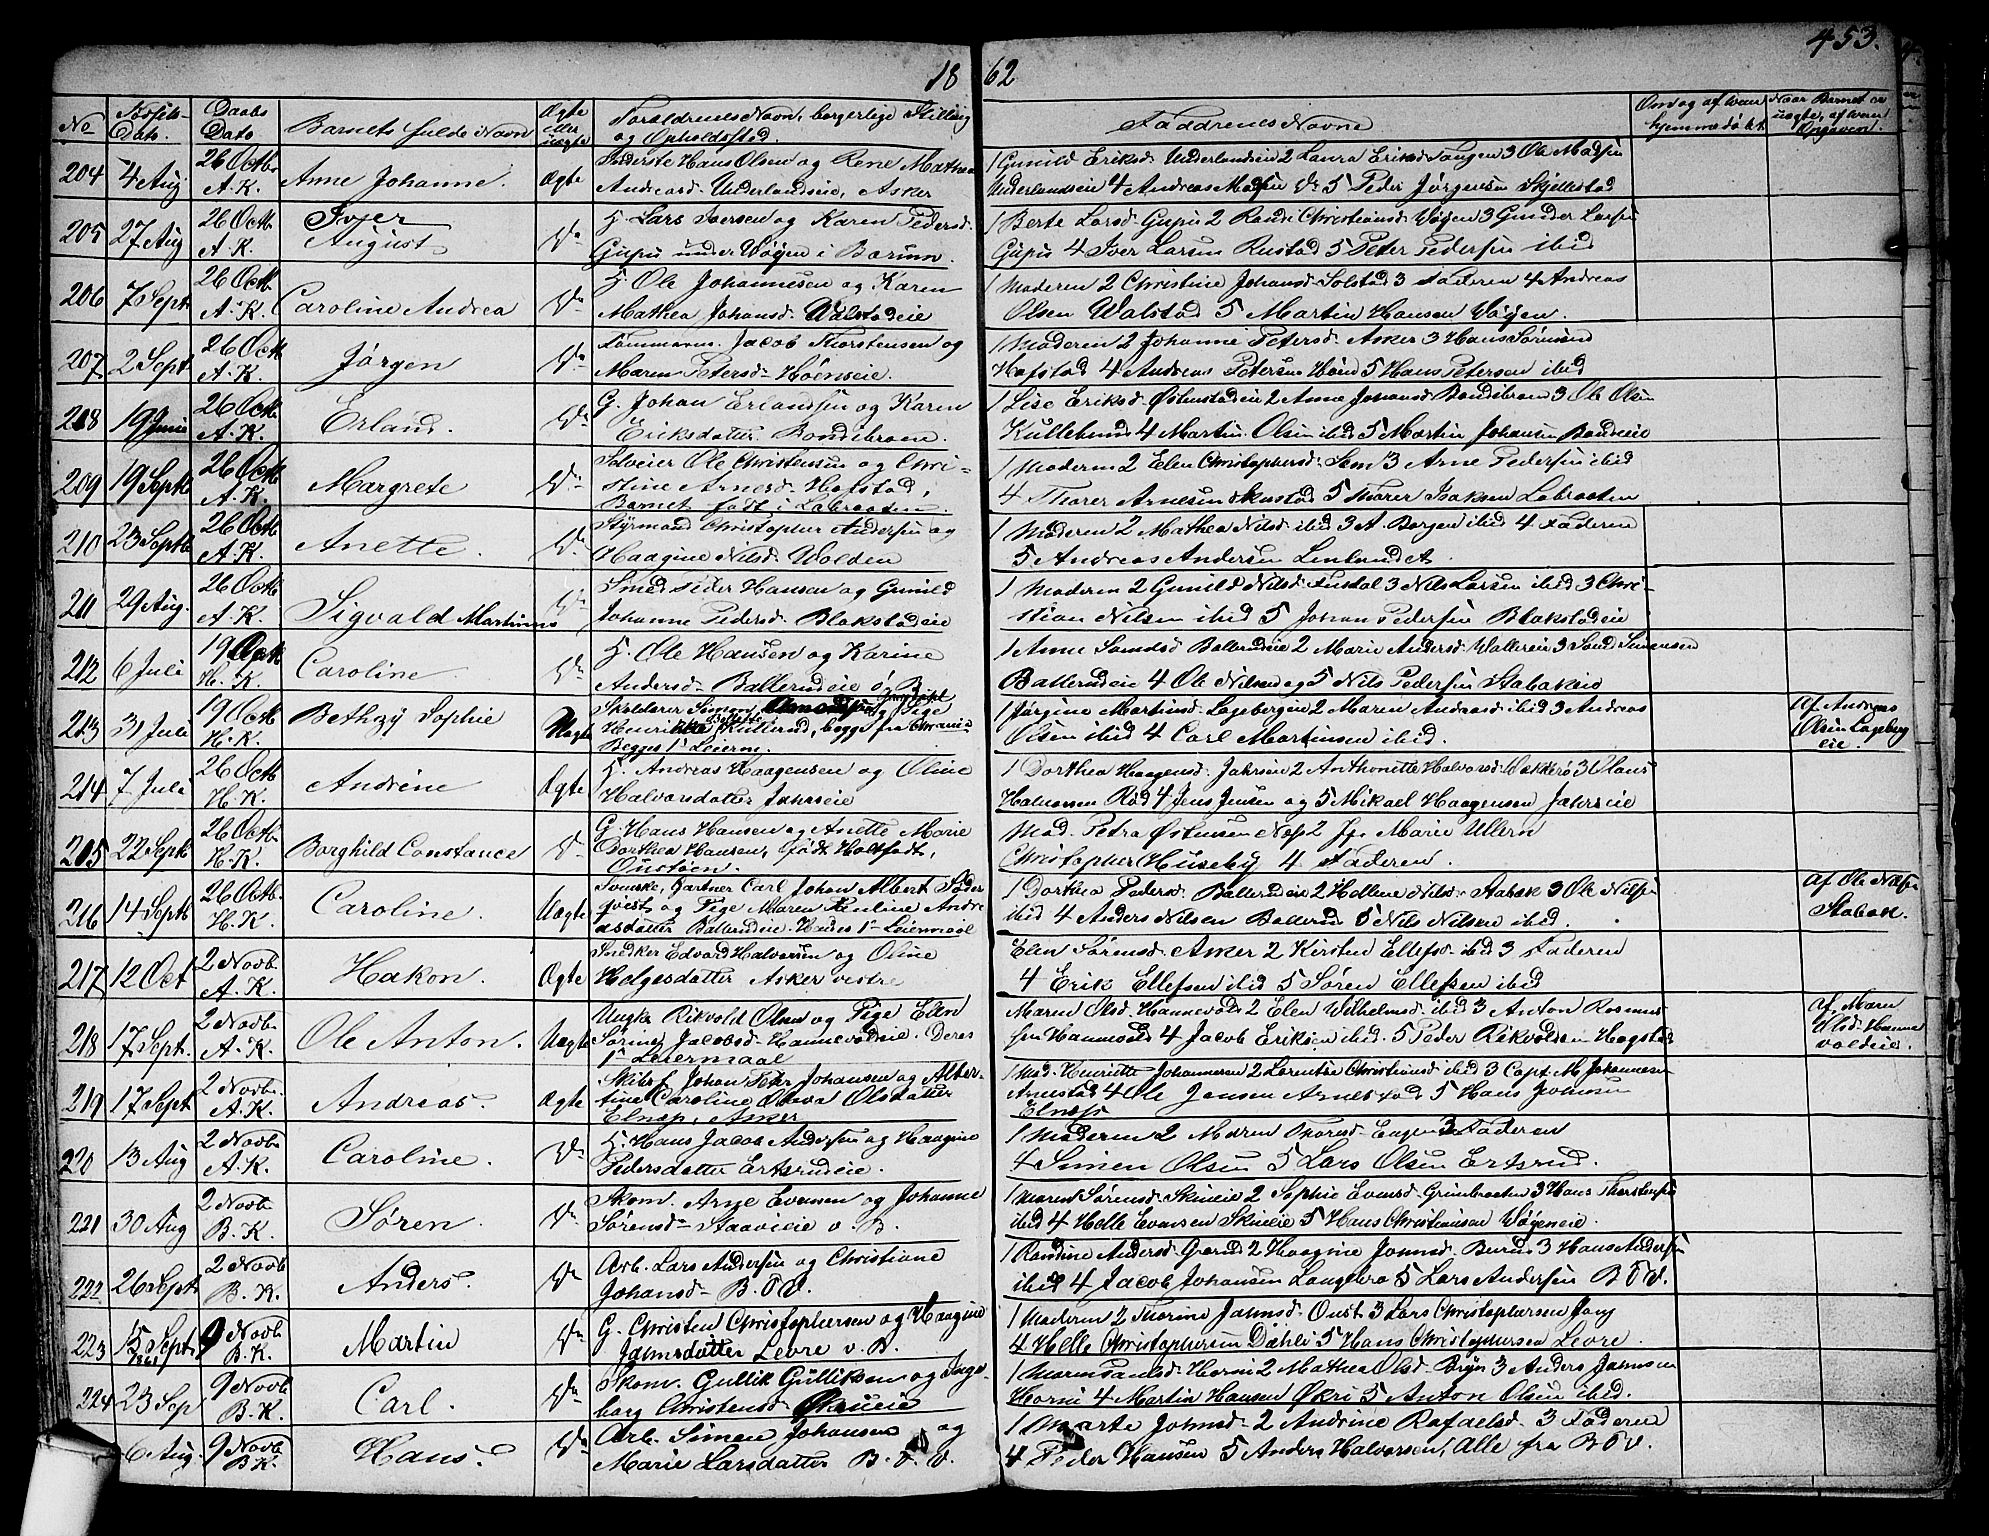 18 62 453.
No Fødsels Dato. Daabs Dato Barnets fulde Navn Ægte eller uægte Forældrenes Navn, borgerlige Stilling og Opholdssted. Faddrenes Navne Om og af hvem hjemmedøbt Naar Barnet er uægte, af hvem Opgiven.
204 4 Aug 26 Octb. A.K. Anne Johanne. Ægte Inderste Hans Olsen og Rene Mathea Andreasd. Underlandseie, Asker
1 Gunild Eriksd. Underlandseie 2 Laura Eriksd. Tangen 3 Ole Madsen Underlandseie 4 Andreas Madsen Do 5 Peder Jørgensen Skjellestad
205 27 Aug 26 Octb A.K. Iver August Do G. Lars Iversen og Karen Pedersd. Gupu under Wøyen i Bærum.
1 Berte Larsd. Gupu 2 Randi Christiansd. Wøyen 3 Gunder Larsen Gupu 4 Iver Larsen Rustad 5 Peter Pedersen ibid
206 7 Sept 26 Octb A.K. Caroline Andrea Do G. Ole Johannesen og Karen Mathea Johansd. Walstadeie
1 Moderen 2 Christine Johansd. Solstad 3 Faderen 4 Andreas Olsen Walstad 5 Martin Hansen Wøyen.
207 2 Sept. 26 Octb A.K. Jørgen Do Tømmerm. Jacob Thorstensen og Maren Petersd. Høenseie.
1 Moderen 2 Johanne Petersd. Asker 3 Hans Sørensen Hofstad 4 Andreas Petersen Høn 5 Hans Petersen ibid
208 19 Juni 26 Octb. A.K. Erland. Do G. Johan Erlandsen og Karen Eriksdatter Bondibraen.
1 Lise Eriksd. Østenstadeie 2 Anne Johansd. Bondibraen 3 Ole Olsen Kullebund 4 Martin Olsen ibid 5 Martin Johansen Bondieie
209 19 Septb 26 Octb A.K. Margrete Do Selveier Ole Christensen og Christine Arnesd. Hofstad, Barnet født i Labraaten.
1 Moderen 2 Elen Christophersd. Sem 3 Arne Pedersen ibid 4 Thorer Arnesen Skustad 5 Thorer Isaksen Labraaten
210 23 Septb 26 Octb A.K. Anette. Do Styrmand Christopher Andersen og Haagine Nilsd. Wolden
1 Moderen 2 Mathea Nilsd. ibid 3 A. Borgen ibid 4 Faderen 5 Andreas Andersen Lenlandet
211 29 Aug. 26 Octb A.K. Sigvald Martinius Do Smed Peder Hansen og Gunild Johanne Pedersd. Blakstadeie
1 Moderen 2 Gunild Nilsd. Fusdal 3 Nils Larsen ibid 3 Christian Nilsen ibid 5 Johan Pedersen Blakstadeie
212 6 Juli 19 Octb H.K. Caroline. Do G. Ole Hansen og Karine Andersd. Ballerudeie ø. B.
1 Anne Samdsd. Ballerudeie 2 Marie Andersd. Wallereie 3 Sand Simensen Ballerudeie 4 Ole Nilsen og 5 Nils Pedersen Stabakeie
213 31 Juli 19 Octb H.K. Bethzy Sophie Uægte Skolelærer Simon og Pige Henrikke Kullerud, begge fra Chrania Begges 1ste Leierm.
1 Jørgine Martinsd. Lagebergeie 2 Maren Andreasd. ibid 3 Andreas Olsen ibid 4 Carl Martinsen ibid. Af Andreas Olsen Lagebergeie.
214 7 Juli 26 Octb H.K. Andrine Ægte G. Andreas Haagensen og Oline Halvorsdatter Jahrseie
1 Dorthea Haagensd. Jahrseie 2 Anthonette Halvorsd. Bækkerø 3 Olaus Halvorsen Rød 4 Jens Jensen og 5 Mikael Haagensen Jahrseie
215 22 Septb 26 Octb. H.K. Borghild Constance Do G. Hans Hansen og Anette Marie Dorthea Hansen, født Holtfodt, Oustøen.
Mad. Petra Østensen Næs 2 Jfr Marie Ullern Christopher Huseby 4 Faderen.
216 14 Septb 26 Octb. H.K. Caroline. Uægte Svenske, Gartner Carl Johan Albert Søderqvest og Pige Maren Pauline Andreasdatter Ballerudeie. Hendes 1ste Leiermaal
1 Dorthea Pedersd. Ballerudeie 2 Hellene Nilsd. Stabak 3 Ole Nilsen ibid 4 Anders Nilsen Ballerud 5 Nils Nilsen ibid. af Ole Nilsen Stabak.
217 12 Oct 2 Novb. A.K. Hakon. Ægte Snedker Edvard Halvorsen og Oline Helgesdatter Asker vestre
Elen Sørensd. Asker 2 Kirsten Ellefsd. ibid 3 Faderen 4 Erik Ellefsen ibid 5 Søren Ellefsen ibid
218 17 Sept. 2 Novb A.K. Ole Anton. Uægte Ungk. Rikvold Olsen og Pige Elen Sørine Jacobsd. Hannevoldeie. Deres 1ste Leiermaal
Maren Olsd. Hannevold 2 Elen Wilhelmsd. ibid 3 Anton Rasmussen Hannevold 4 Jacob Eriksen ibid. 5 Peder Rikvoldsen Hogstad af Maren Olsd. Hannevoldeie.
219 17 Sept 2 Novb. A.K. Andreas. Ægte Skibsf. Johan Peter Johansen og Albertine Caroline Olava Olsdatter Elnæs, Asker
1 Mad. Henriette Johannesen 2 Lorentse Christiansd. ibid 3 Capt. M. Johannesen Arnestad 4 Ole Jensen Arnestad 5 Hans Johnsen Elnæs
220 13 Aug 2 Novb. A.K. Caroline. Do G. Hans Jacob Andersen og Haagine Pedersdatter Ertsrudeie.
1 Moderen 2 Maren Thoresd. Engen 3 Faderen 4 Simen Olsen 5 Lars Olsen Ertsrud.
221 30 Aug 2 Novb. B.K. Søren. Do Skom. Arne Evensen og Johanne Sørensd. Staavieie v. B.
1 Maren Sørensd. Skuieie 2 Sophie Evensd. Grinibraaten 3 Hans Thorstensen ibid 4 Helle Evensen Skuieie 5 Hans Christiansen Wøyeneie.
222 26 Septb 2 Novb B.K. Anders. Do Arb. Lars Andersen og Christiane Johansd. B.V.
1 Randine Andersd. Grorud 2 Haagine Jonnsd. Burud 3 Hans Andersen ibid 4 Jacob Johansen Langebro 5 Lars Andersen B.V.
223 15 Sept. 1861 9 Novb. B.K. Martin Do G. Christen Christophersen og Haagine Jahnsdatter Levre v. B.
1 Moderen 2 Thorine Jahnsd. Oust 3 Lars Christophersen Jong 4 Helle Christophersen Dæhli 5 Hans Christophersen Levre.
224 23 Sep 9 Novb B.K. Carl. Do Skom. Gullik Gulliksen og Ingeborg Christensd.
1 Maren Hansd. Horni 2 Mathea Olsd. Bryn 3 Anders Jahnsen Horni 4 Martin Hansen Økri 5 Anton Olsen ibid.
6 Aug. 9 Novb B.K. Hans. Do Arb. Simen Johansen og Marie Larsdatter B.V.
1 Marte Johnsd. 2 Andrine Rafaelsd. 3 Faderen 4 Peder Hansen 5 Anders Halvorsen, Alle fra B.V.